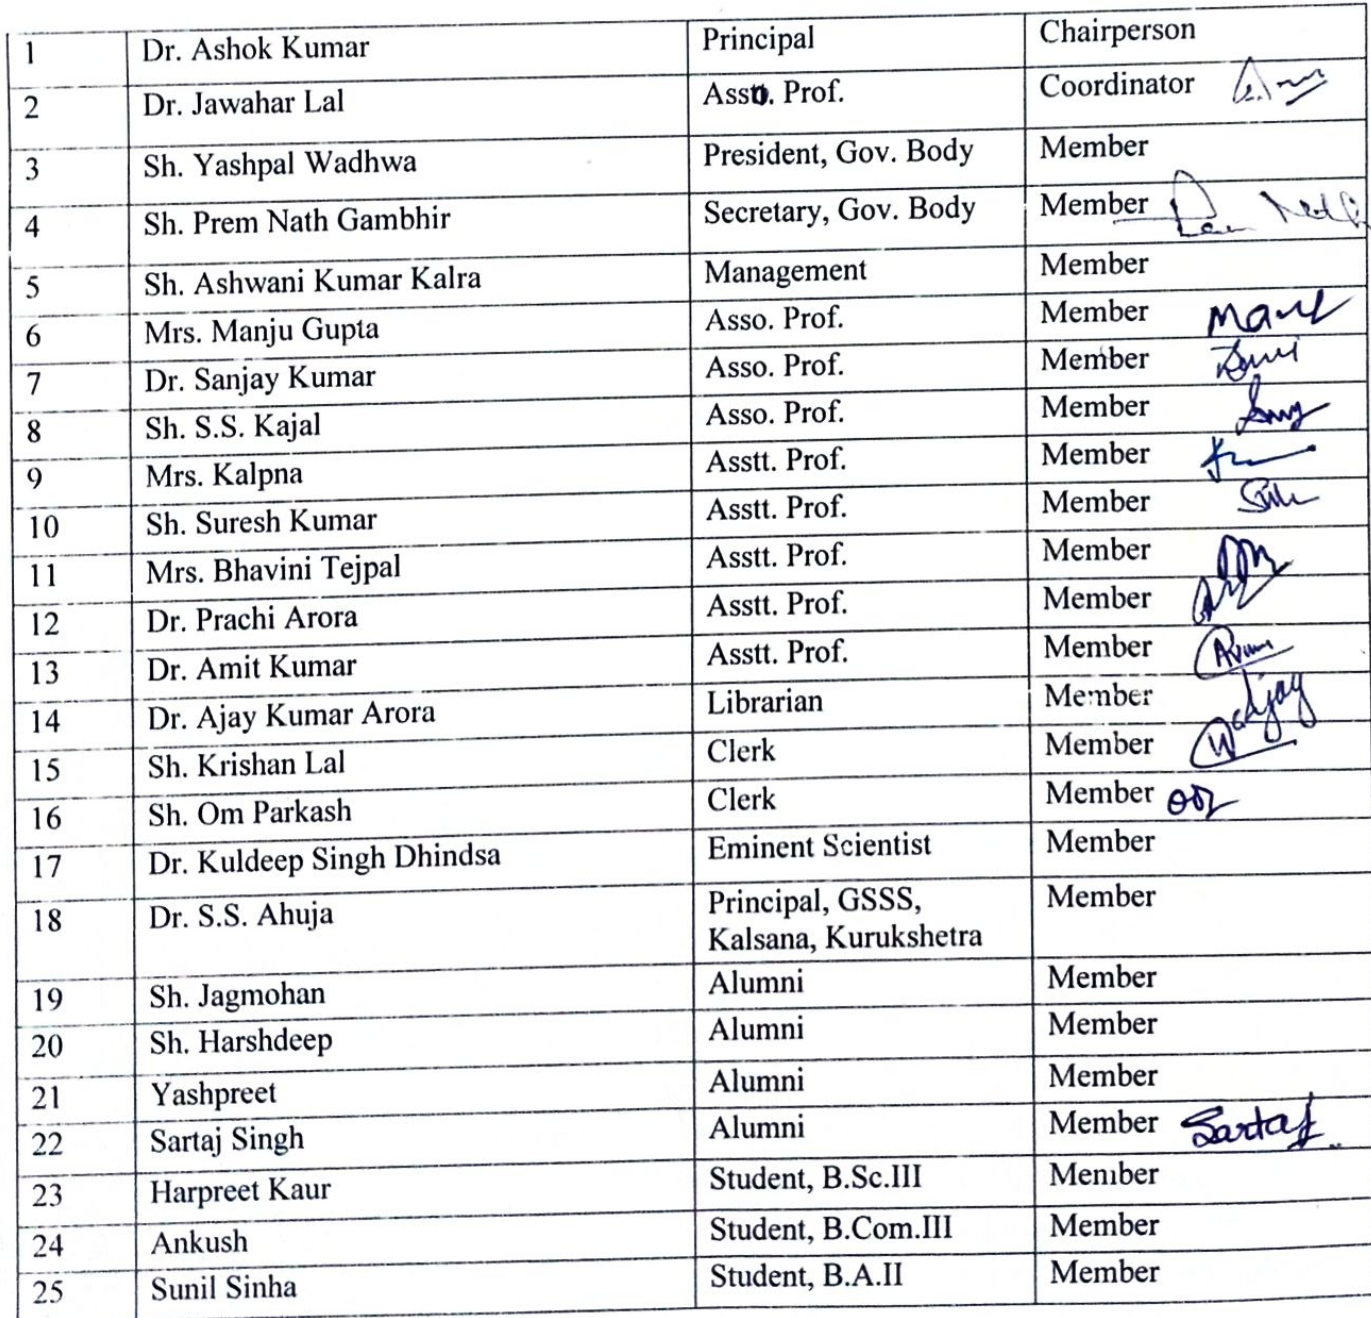 1 Dr. Ashok Kumar Principal Chairperson
2 Dr. Jawahar Lal Asso. Prof. Coordinator
3 Sh. Yashpal Wadhwa President, Gov. Body Member
4 Sh. Prem Nath Gambhir Secretary, Gov. Body Member
5 Sh. Ashwani Kumar Kalra Management Member
6 Mrs. Manju Gupta Asso. Prof. Member
7 Dr. Sanjay Kumar Asso. Prof. Member
8 Sh. S.S. Kajal Asso. Prof. Member
9 Mrs. Kalpna Asstt. Prof. Member
10 Sh. Suresh Kumar Asstt. Prof. Member
11 Mrs. Bhavini Tejpal Asstt. Prof. Member
12 Dr. Prachi Arora Asstt. Prof. Member
13 Dr. Amit Kumar Asstt. Prof. Member
14 Dr. Ajay Kumar Arora Librarian Member Ajay
15 Sh. Krishan Lal Clerk Member
16 Sh. Om Parkash Clerk Member
17 Dr. Kuldeep Singh Dhindsa Eminent Scientist Member
18 Dr. S.S. Ahuja Principal, GSSS, Member
Kalsana, Kurukshetra
19 Sh. Jagmohan Alumni Member
20 Sh. Harshdeep Alumni Member
21 Yashpreet Alumni Member
22 Sartaj Singh Alumni Member Sartaj
23 Harpreet Kaur Student, B.Sc.III Member
24 Ankush Student, B.Com.III Member
25 Sunil Sinha Student, B.A.II Member